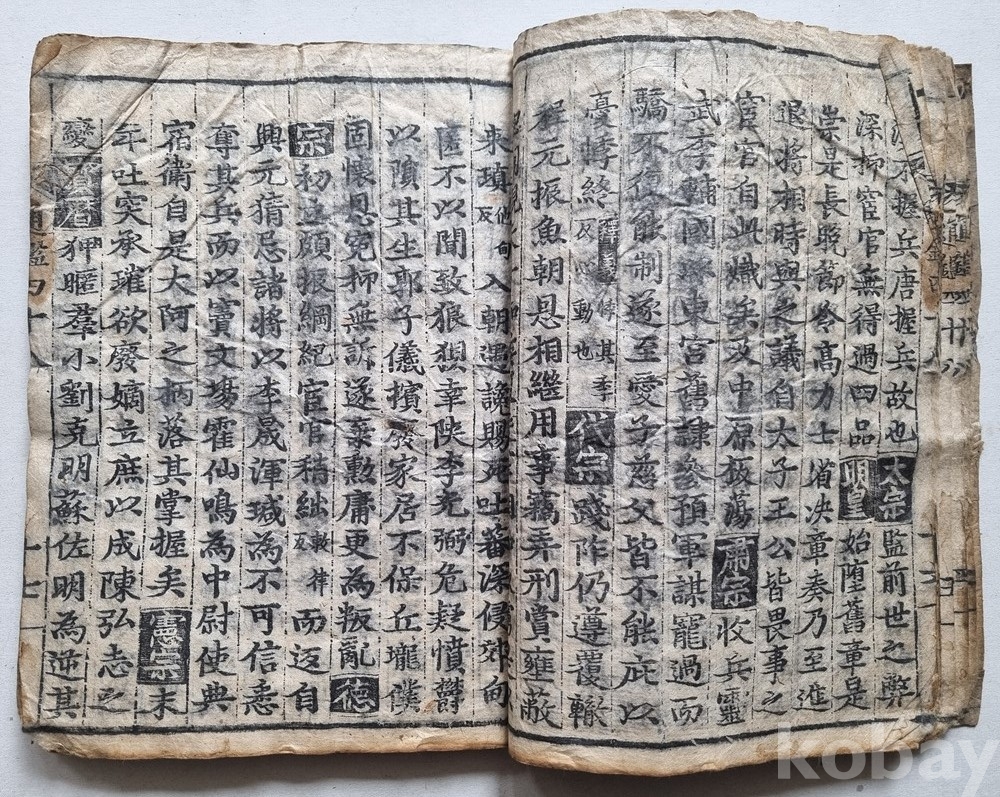 不握兵唐握兵故也太宗監前世之弊
深抑宦官無得過四品明皇始墮舊章是
崇是長晚節令高力士省決章奏乃至進
退將相時與之議自太子王公皆畏事之
宦官自此熾矣及中原板蕩肅宗收兵靈
武李輔國東宮舊隷參預軍謀寵過而
驕不復能制遂至愛子慈父皆不能庇以
憂悸終其季反心動也代宗踐阼仍遵覆轍
程元振魚朝恩相繼用事竊弄刑賞壅蔽
來瑱他甸反入朝遇讒賜死吐蕃深侵郊甸
匿不以聞致狼狽幸陝李光弼危疑憤鬱
以隕其生郭子儀擯廢家居不保丘壠僕
固懷恩寃抑無訴遂棄勳庸更為叛亂德
宗初立頗振綱紀宦官稍絀敕律反而返自
興元猜忌諸將以李晟渾瑊為不可信悉
奪其兵而以竇文場霍仙鳴為中尉使典
宿衛自是大阿之柄落其掌握矣憲宗末
年吐突承璀欲廢嫡立庶以成陳弘志之
變寶曆狎暱羣小劉克明蘇佐明為逆其
通鑑四十八
kobay